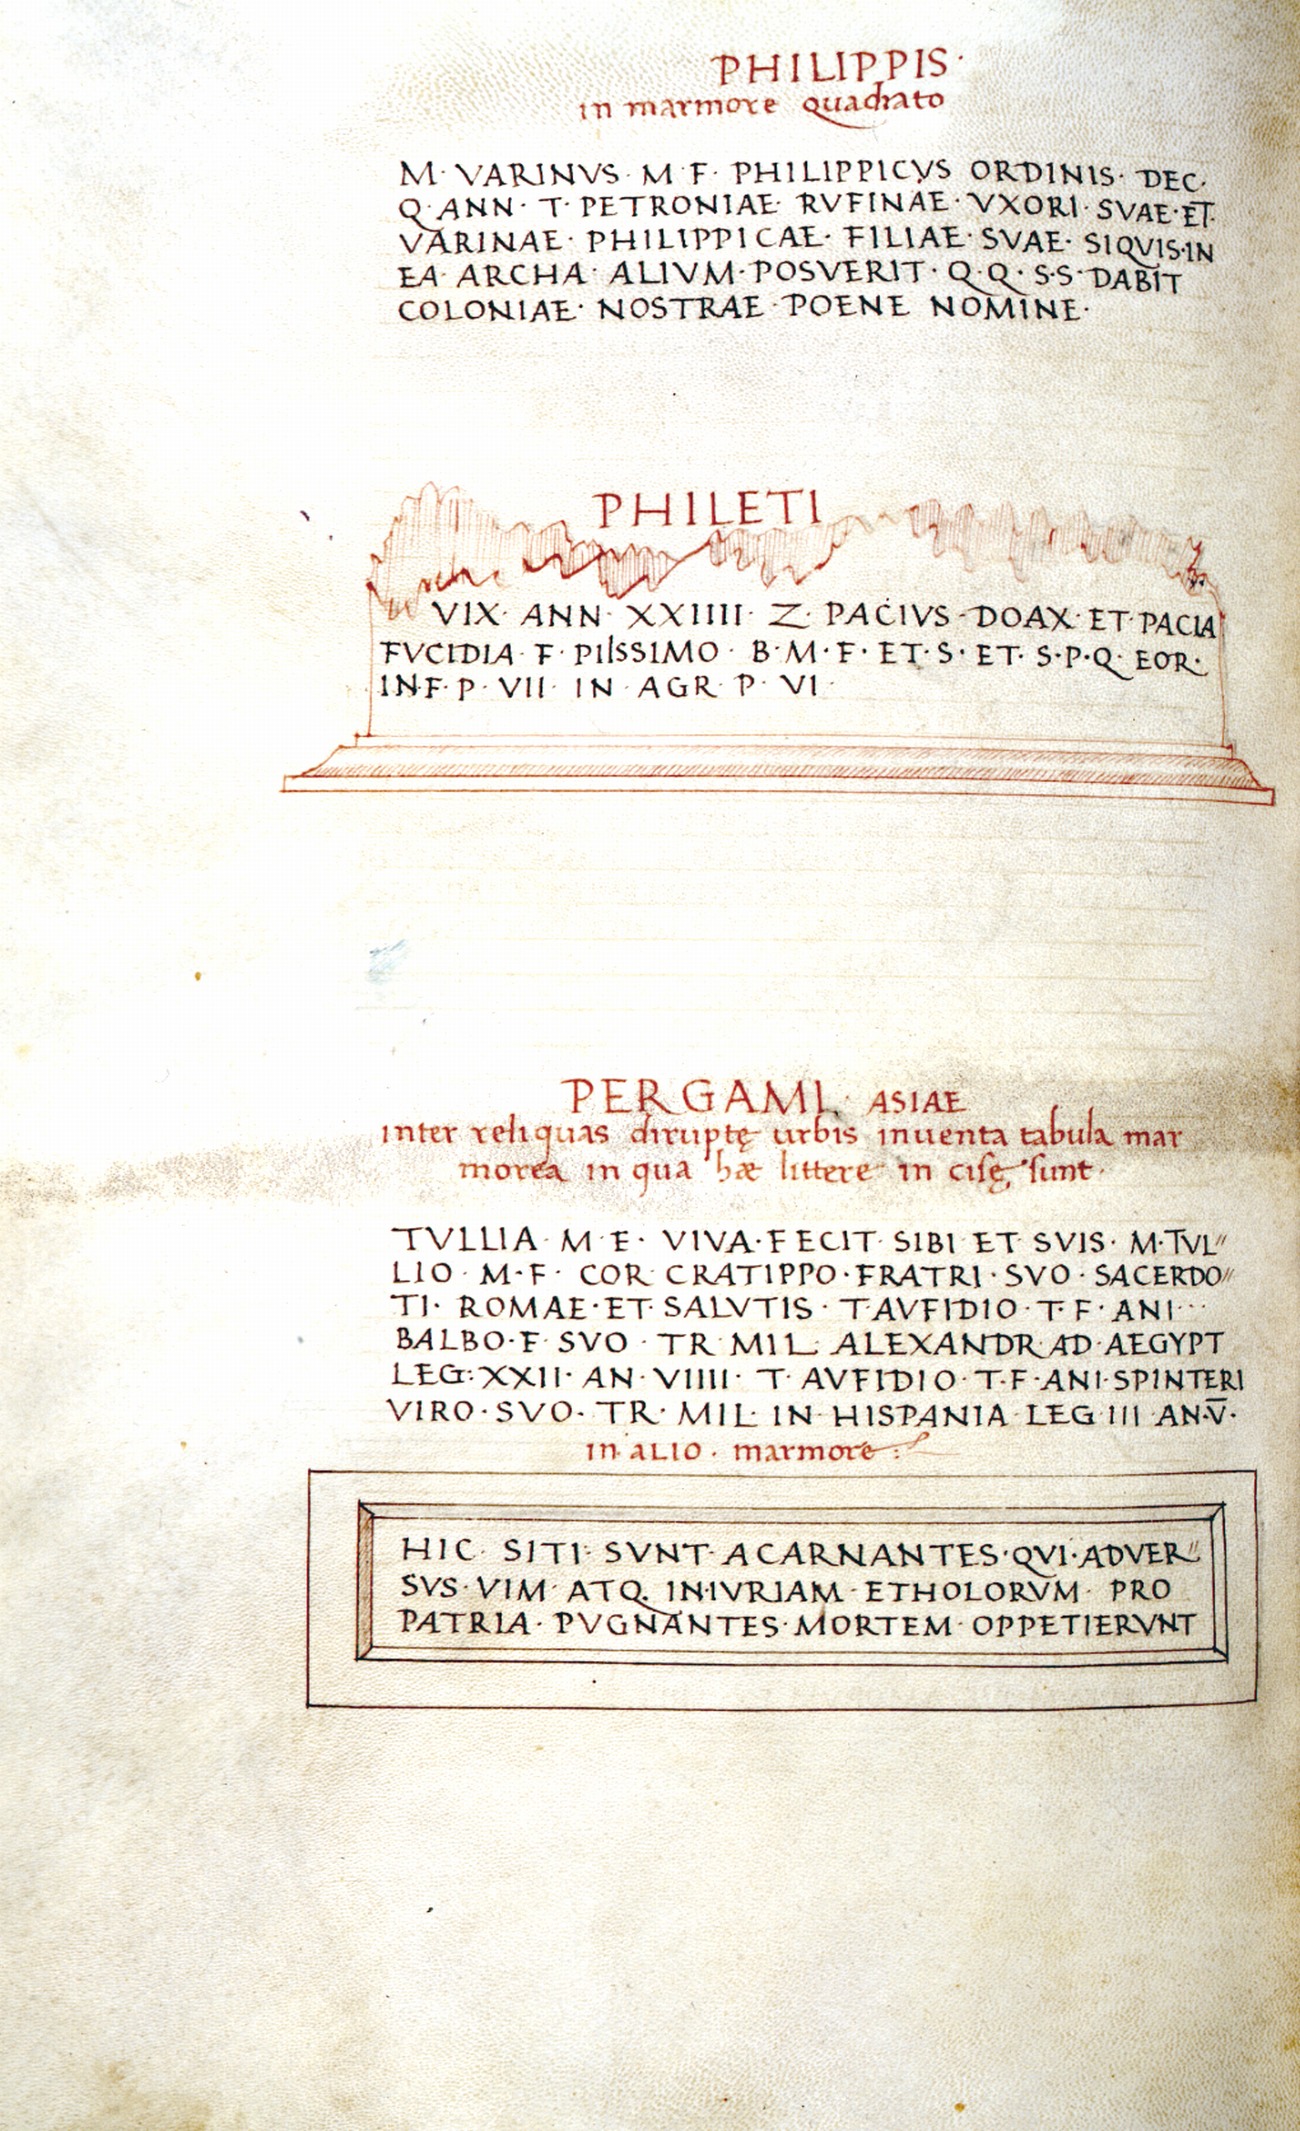 PHILIPPIS·
in marmore quadrato
M· VARINVS· M F· PHILIPPICVS ORDINIS· DEC·
Q·ANN· T· PETRONIAE· RVFINAE·VXORI·SVAE·ET·
VARINAE· PHILIPPICAE· FILIAE·SVAE· SIQVIS·IN
EA· ARCHA· ALIVM·POSVERIT·Q·Q·S·S·DABIT
COLONIAE· NOSTRAE·POENE NOMINE·
PHILETI
VIX· ANN· XXIIII· Z· PACIVS·DOAX· ET·PACIA
FVCIDIA· F· PIISSIMO· B·M·F·ET·S·ET· S·P·Q· EOR·
IN·F·P·VII· IN·AGR·P·VI·
PERGAMI· ASIAE
inter reliquas diruptę urbis inuenta tabula mar
morea in qua hæ littere in cisę sunt·
TVLLIA· M·F· VIVA·FECIT·SIBI·ET·SVIS· M·TVL//
LIO· M·F· COR·CRATIPPO·FRATRI·SVO·SACERDO//
TI· ROMAE·ET·SALVTIS· T·AVFIDIO·T·F·ANI···
BALBO·F·SVO·TR·MIL· ALEXANDR·AD·AEGYPT
LEG:XXII·AN·VIIII· T·AVFIDIO·T·F·ANI·SPINTERI
VIRO·SVO·TR·MIL·IN·HISPANIA·LEG·III·AN·V̅·
in·ALIO· marmore·:
HIC· SITI· SVNT·ACARNANTES·QVI·ADVER//
SVS·VIM·ATQ· IN·IVRIAM·ETHOLORVM· PRO
PATRIA·PVGNANTES·MORTEM·OPPETIERVNT